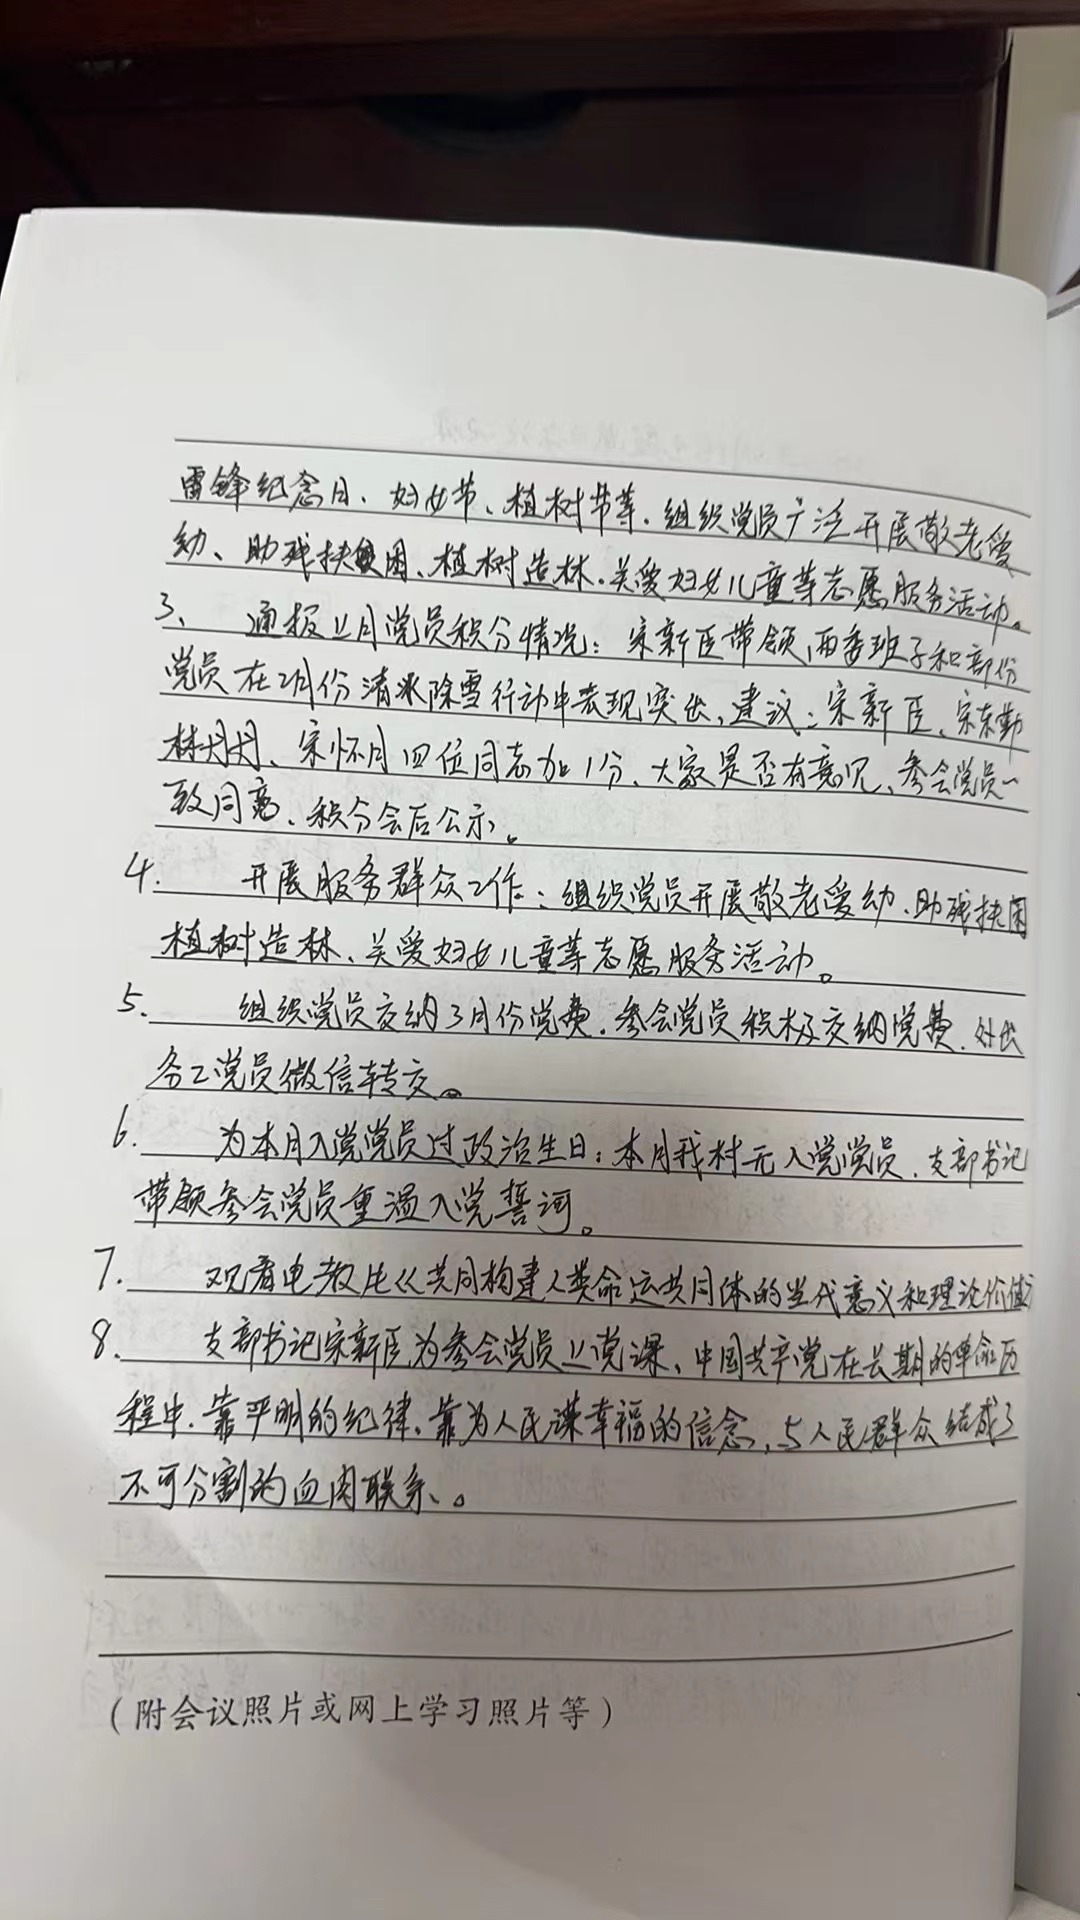 雷锋纪念日、妇女节、植树节等.组织党员广泛开展敬老爱
幼、助残扶困、植树造林.关爱妇女儿童等志愿服务活动。
3、通报上月党员积分情况：宋新臣带领,两委班子和部份
党员在2月份清冰除雪行动中表现突出,建议：宋新臣、宋东勤
林丹丹、宋怀月四位同志加1分、大家是否有意见、参会党员一
致同意、积分会后公示。
4.开展服务群众工作：组织党员开展敬老爱幼、助残扶困
植树造林、关爱妇女儿童等志愿服务活动。
5.组织党员交纳3月份党费.参会党员积极交纳党费.外出
务工党员微信转交。
6.为本月入党党员过政治生日：本月我村无入党党员.支部书记
带领参会党员重温入党誓词。
7.观看电教片《共同构建人类命运共同体的当代意义和理论价值》
8.支部书记宋新臣为参会党员上党课、中国共产党在长期的革命历
程中.靠严明的纪律、靠为人民谋幸福的信念,与人民群众结成了
不可分割的血肉联系、。
（附会议照片或网上学习照片等）